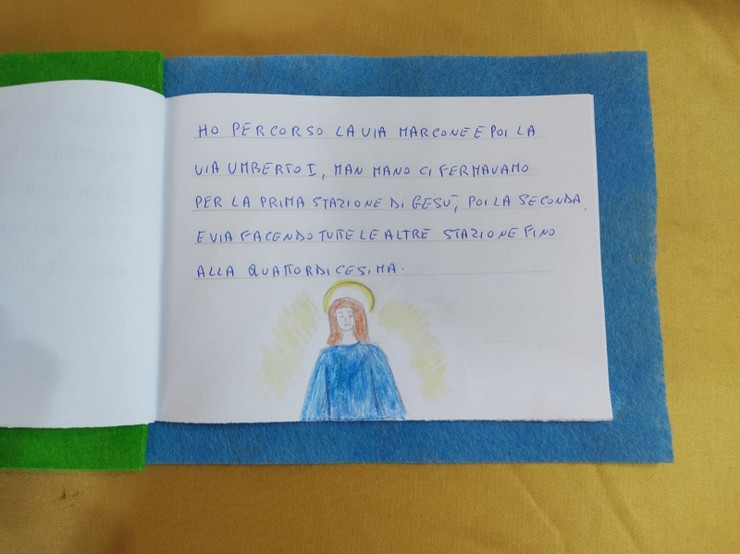 HO PERCORSO LA VIA MARCONE E POI LA
VIA UMBERTO I, MAN MANO CI FERMAVAMO
PER LA PRIMA STAZIONE DI GESÙ, POI LA SECONDA
E VIA FACENDO TUTTE LE ALTRE STAZIONE FINO
ALLA QUATTORDICESIMA.